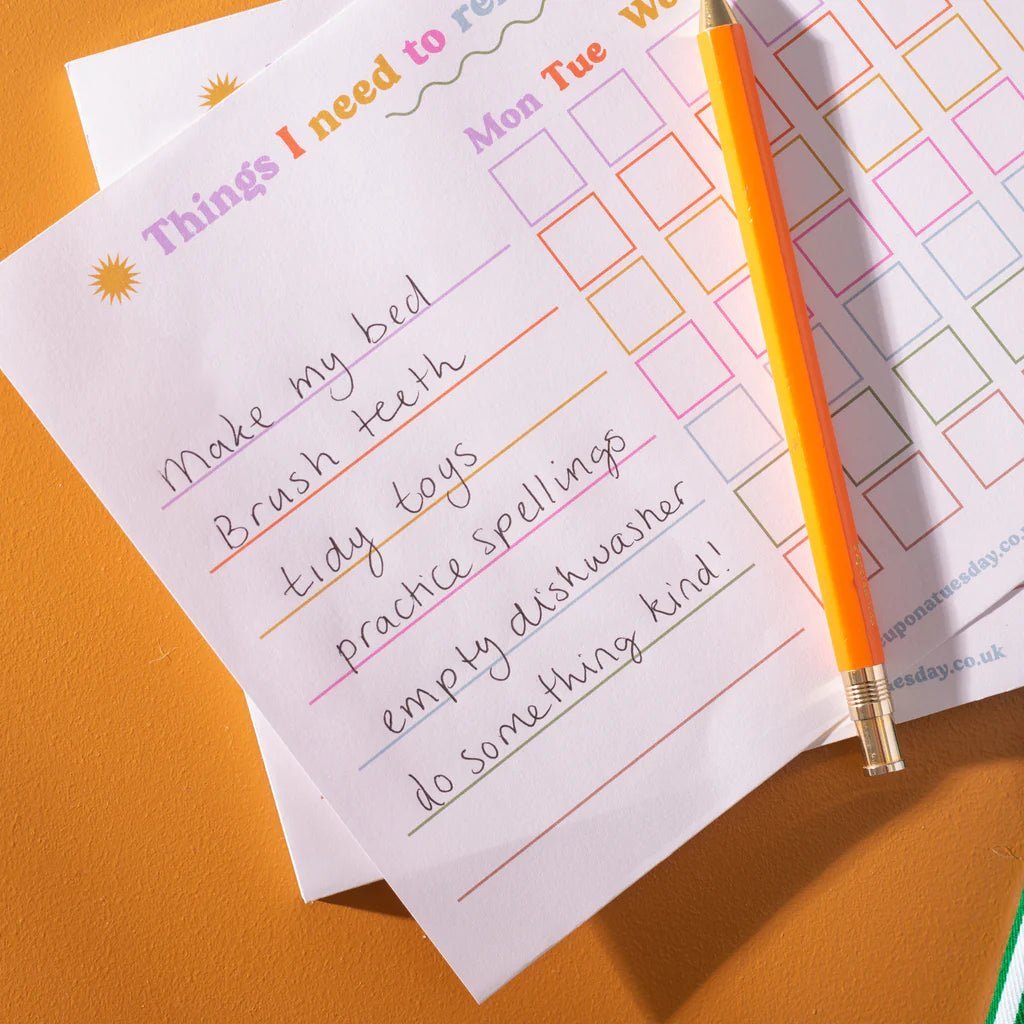 Things I need to
Mon Tue
make my bed
Brush teeth
tidy toys
practice spellings
empty dishwasher
do something kind!
uponatuesday.co.
esday.co.uk